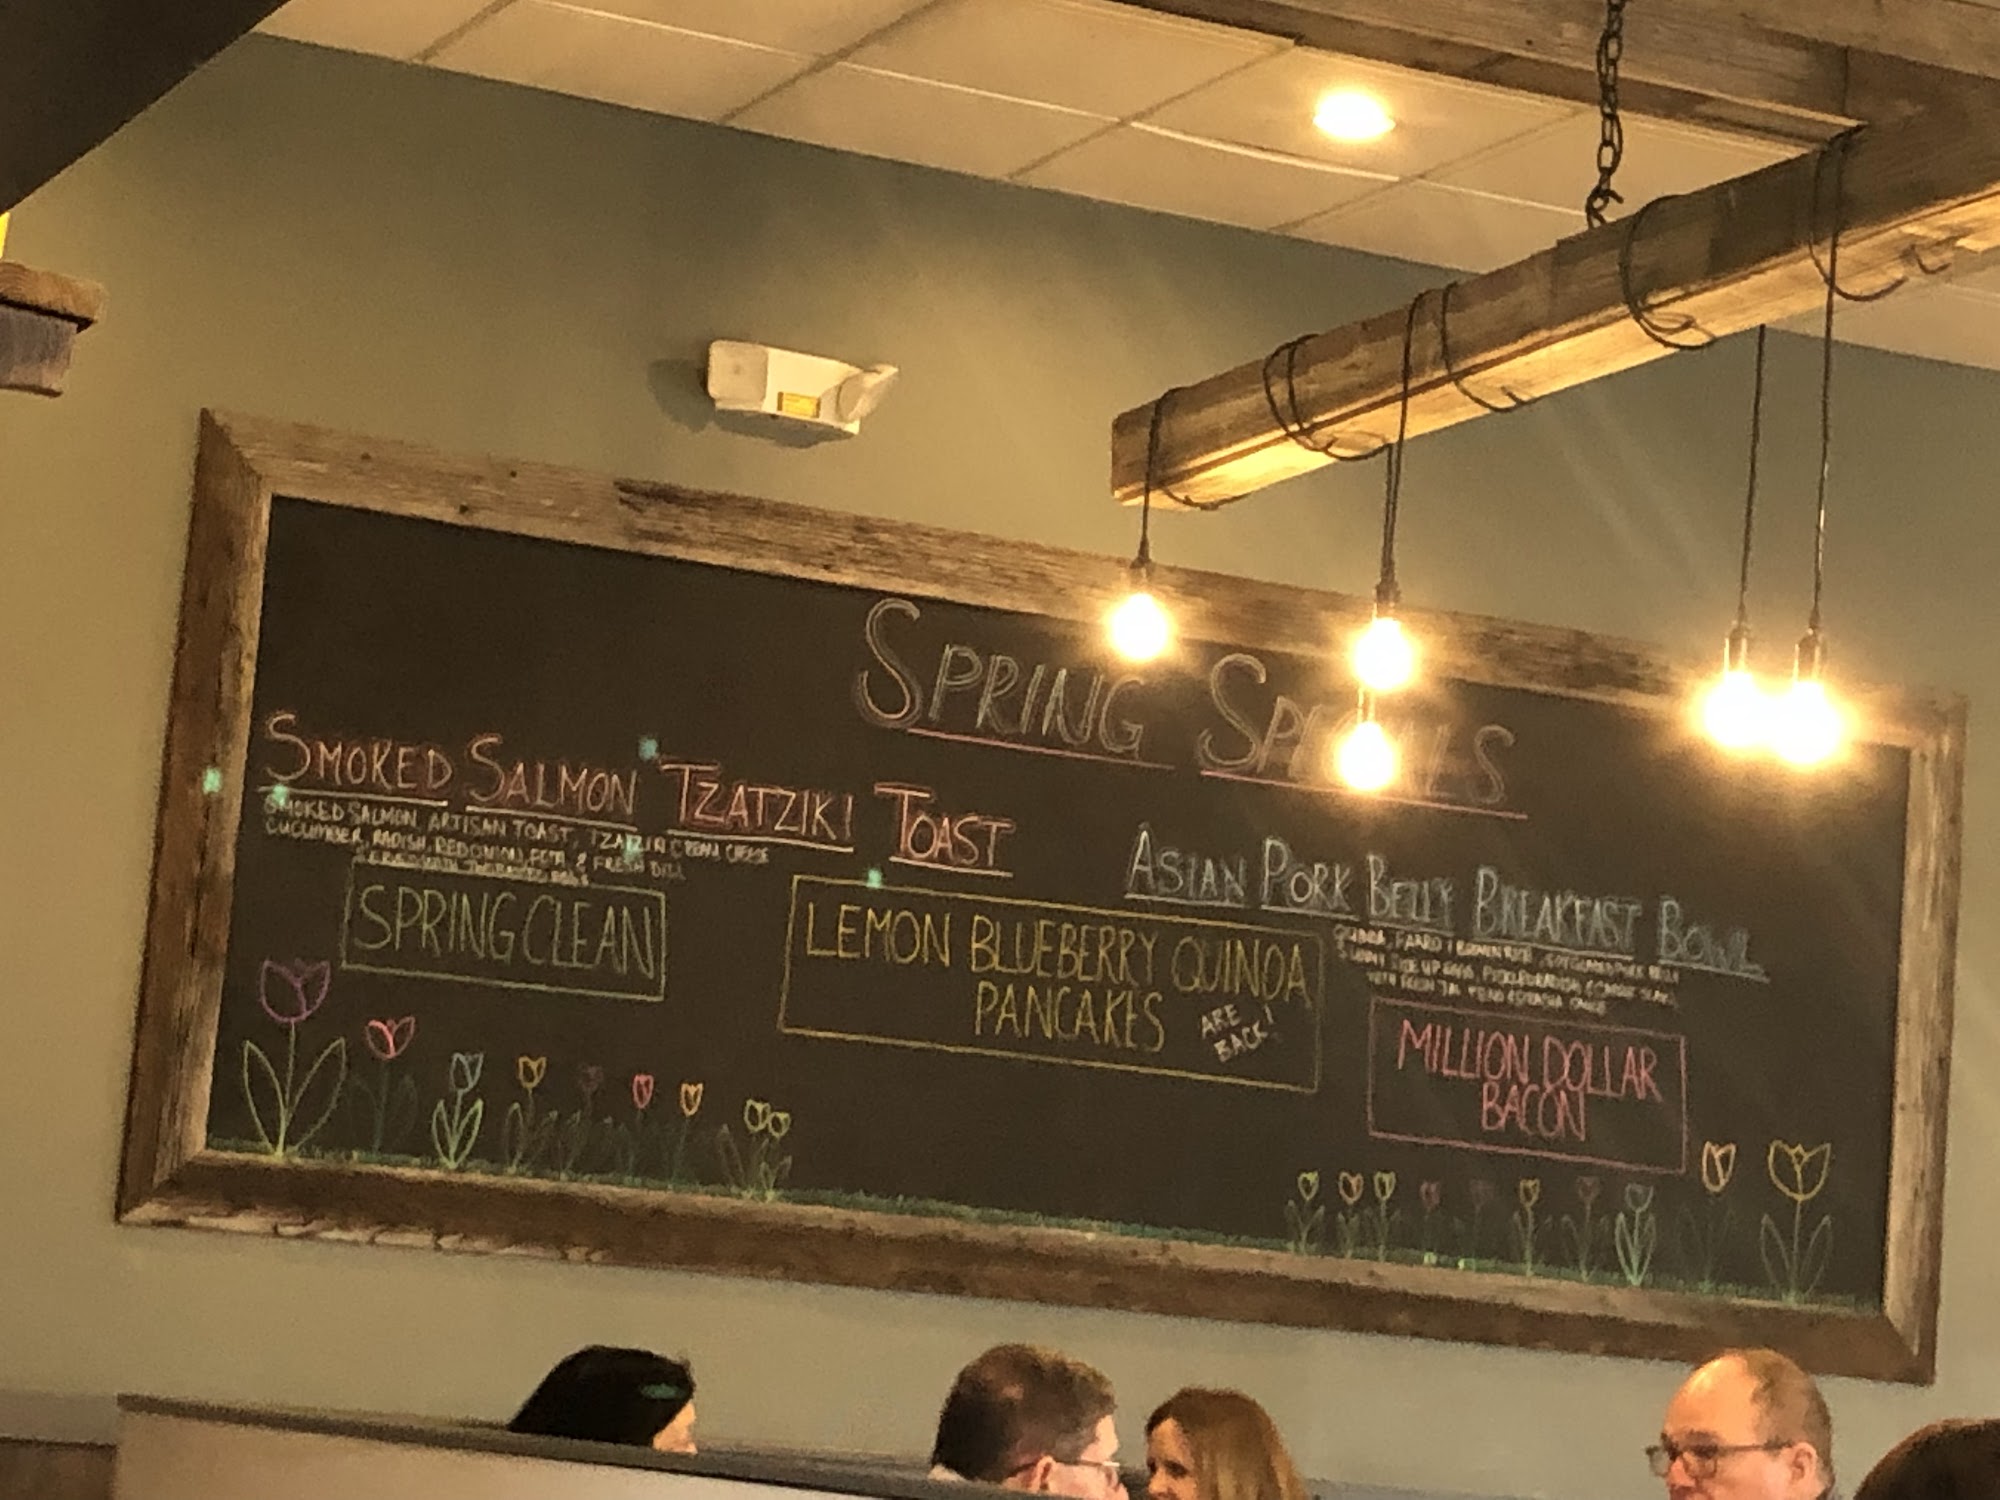 SPRING SPECIALS
SMOKED SALMON TZATZIKI TOAST
SMOKED SALMON, ARTISAN TOAST, TZATZIKI CREAM CHEESE
CUCUMBER, RADISH, RED ONION, FETA, & FRESH DILL
SPRING CLEAN
LEMON BLUEBERRY QUINOA
PANCAKES
ARE
BACK!
ASIAN PORK BELLY BREAKFAST BOWL
MILLION DOLLAR
BACON